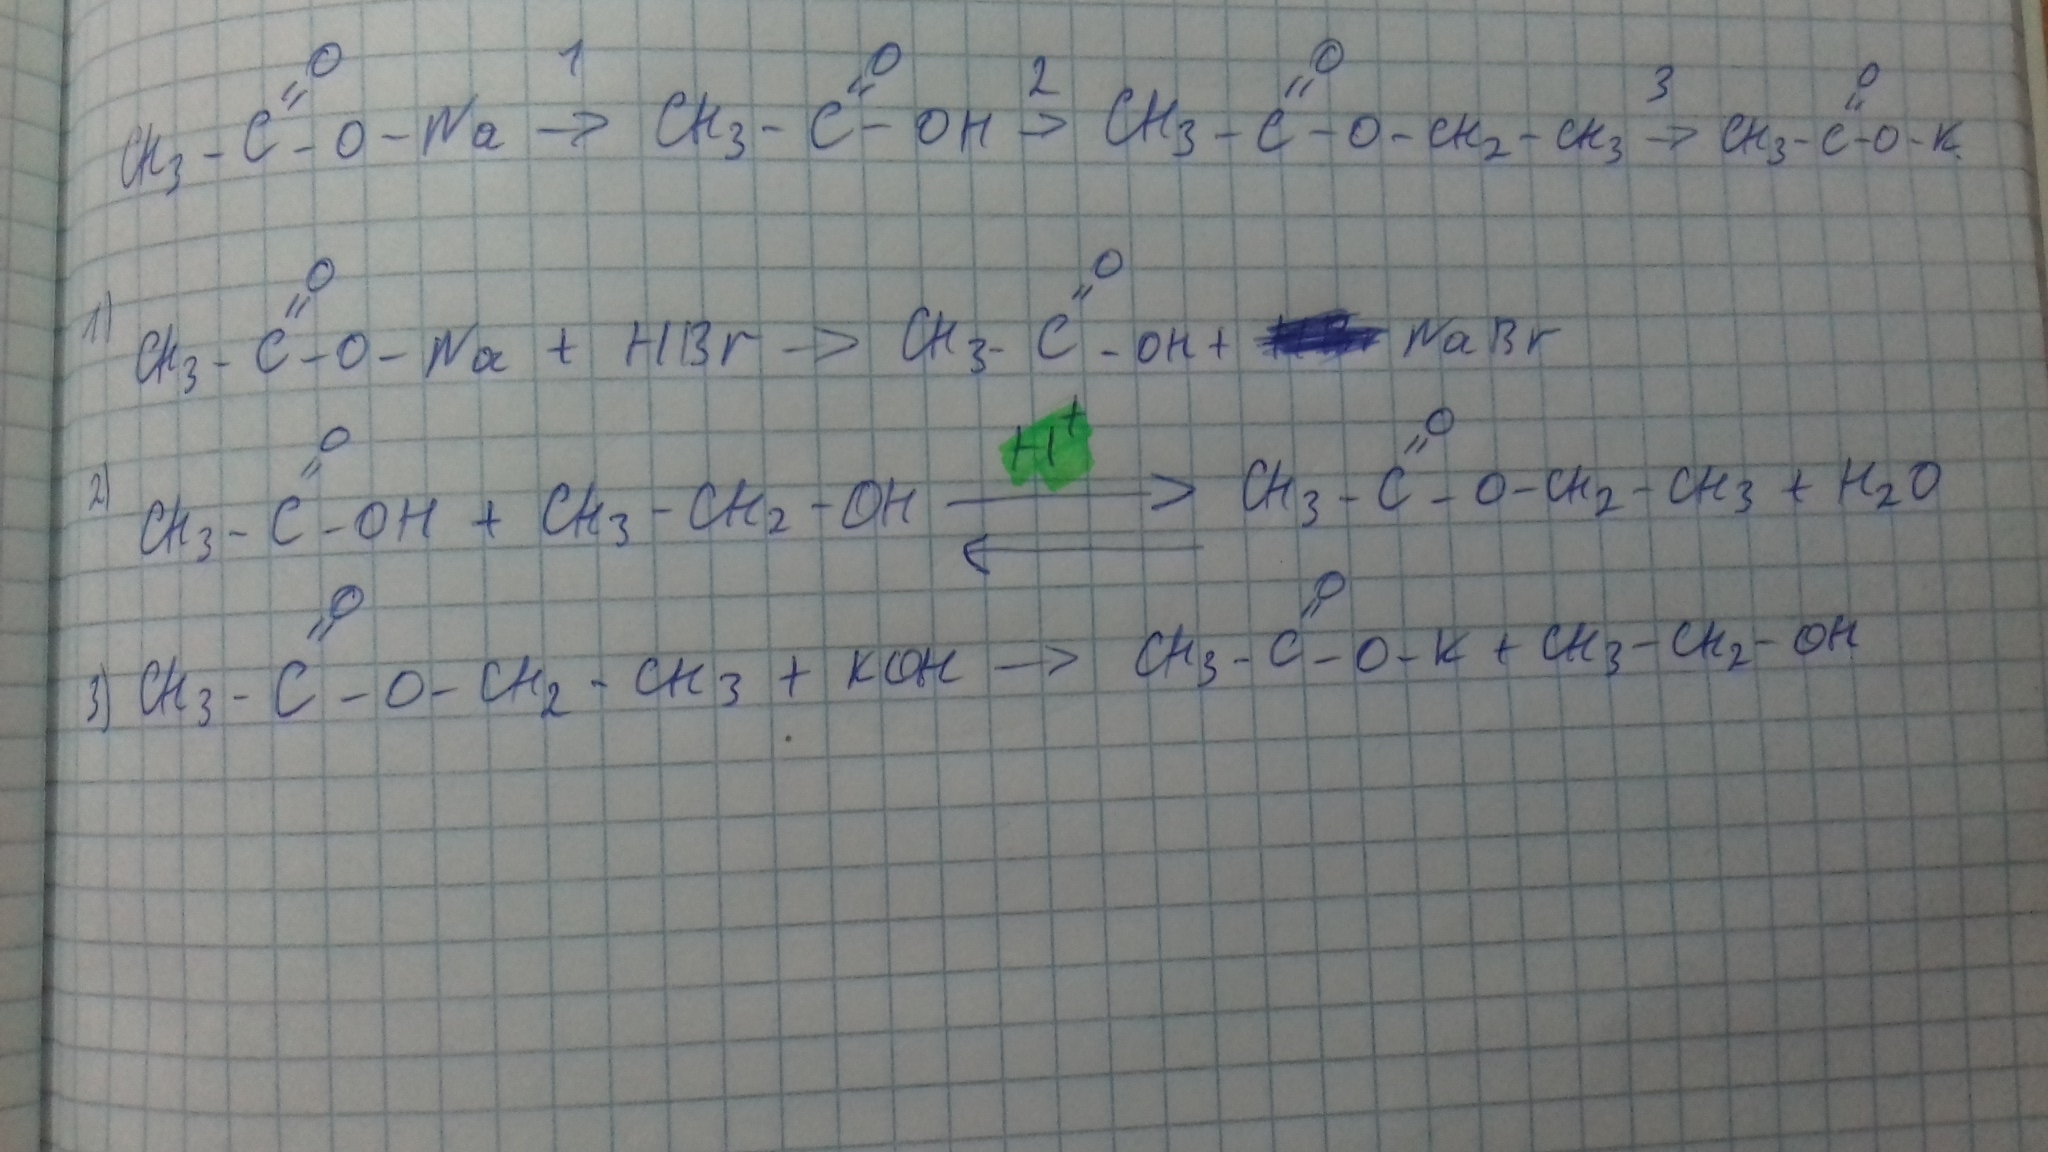 CH3-C(=O)-O-Na 1→ CH3-C(=O)-OH 2→ CH3-C(=O)-O-CH2-CH3 3→ CH3-C(=O)-O-K
1) CH3-C(=O)-O-Na + HBr → CH3-C(=O)-OH + NaBr
2) CH3-C(=O)-OH + CH3-CH2-OH H+ ⇄ CH3-C(=O)-O-CH2-CH3 + H2O
3) CH3-C(=O)-O-CH2-CH3 + KOH → CH3-C(=O)-O-K + CH3-CH2-OH